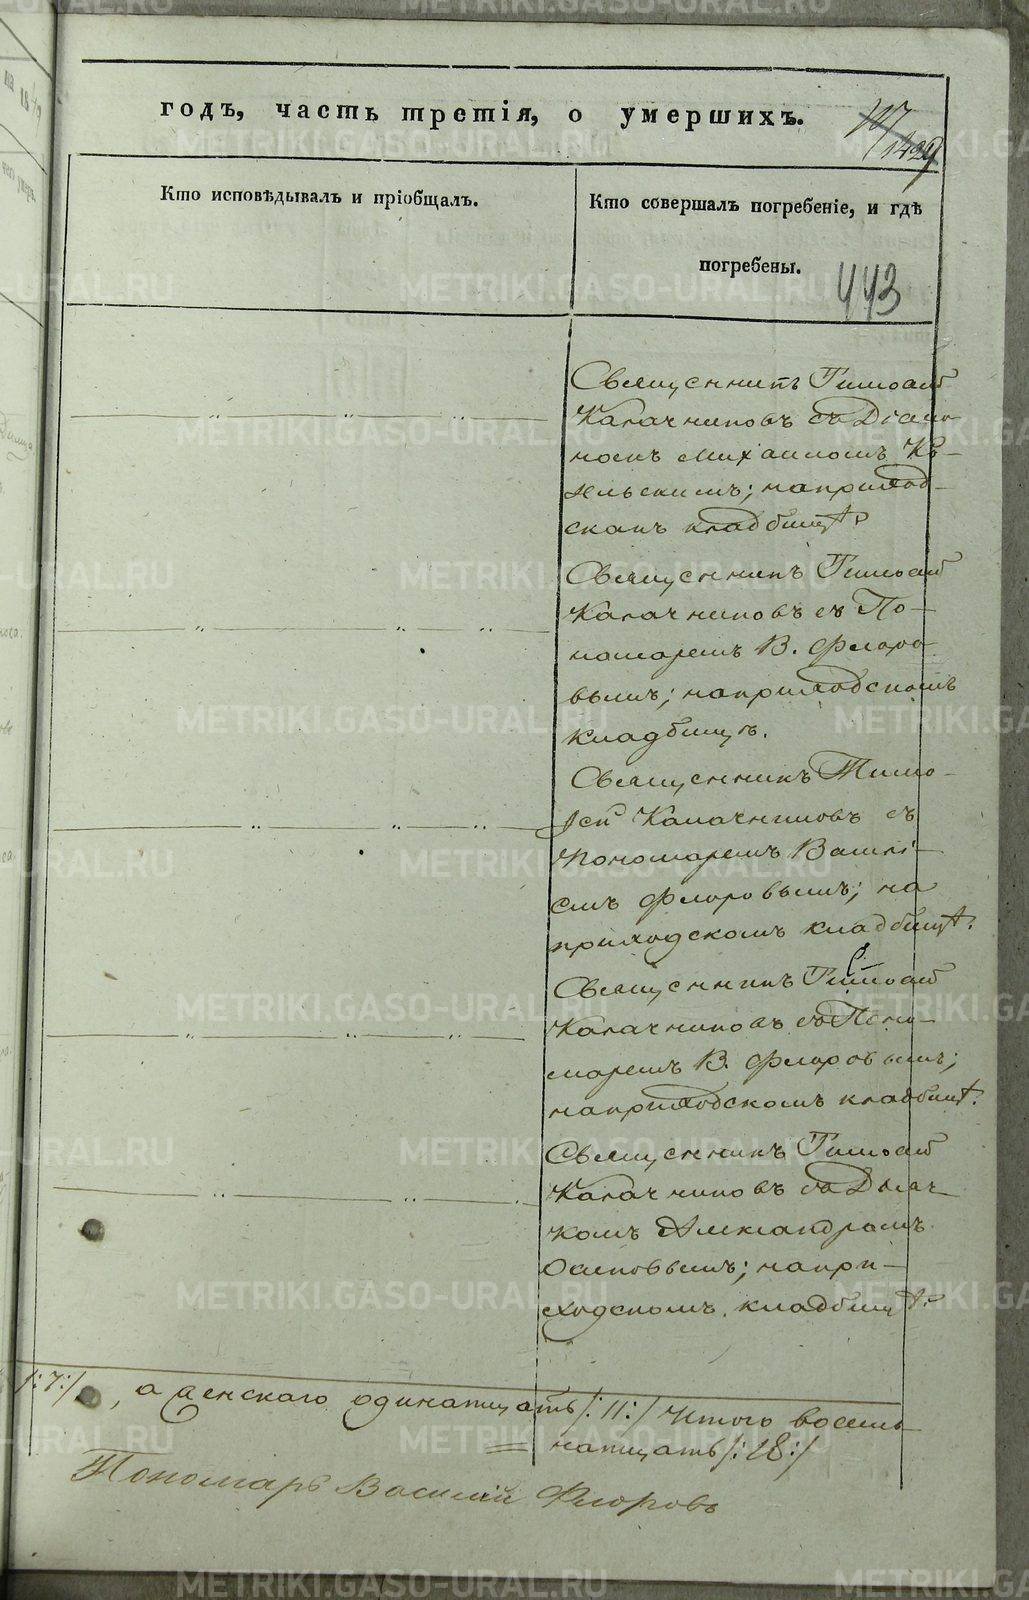 годъ, часть третія, о умершихъ.
1429
Кто исповѣдывалъ и пріобщалъ.
Кто совершалъ погребеніе, и гдѣ
погребены.
443
Священникъ Тимоѳей
Калачниковъ съ Діако-
номъ Михаиломъ
на приход-
скомъ кладбищѣ.
Священникъ Тимоѳей
Калачниковъ съ По-
номаремъ В. Флоро-
вымъ; на приходскомъ
кладбищѣ.
Священникъ Тимо-
ѳей Калачниковъ съ
Пономаремъ Василі-
емъ Флоровымъ; на
приходскомъ кладбищѣ.
Священникъ Тимоѳей
Калачниковъ съ Поно-
маремъ В. Флоровымъ;
на приходскомъ кладбищѣ.
Священникъ Тимоѳей
Калачниковъ съ Дьяч-
комъ Александромъ
Осиповымъ; на при-
ходскомъ кладбищѣ.
/:7:/, а женскаго одинатцать /:11:/ Итого восемь-
натцать /:18:/
Пономарь Василій Флоровъ
METRIKI.GASO-URAL.RU